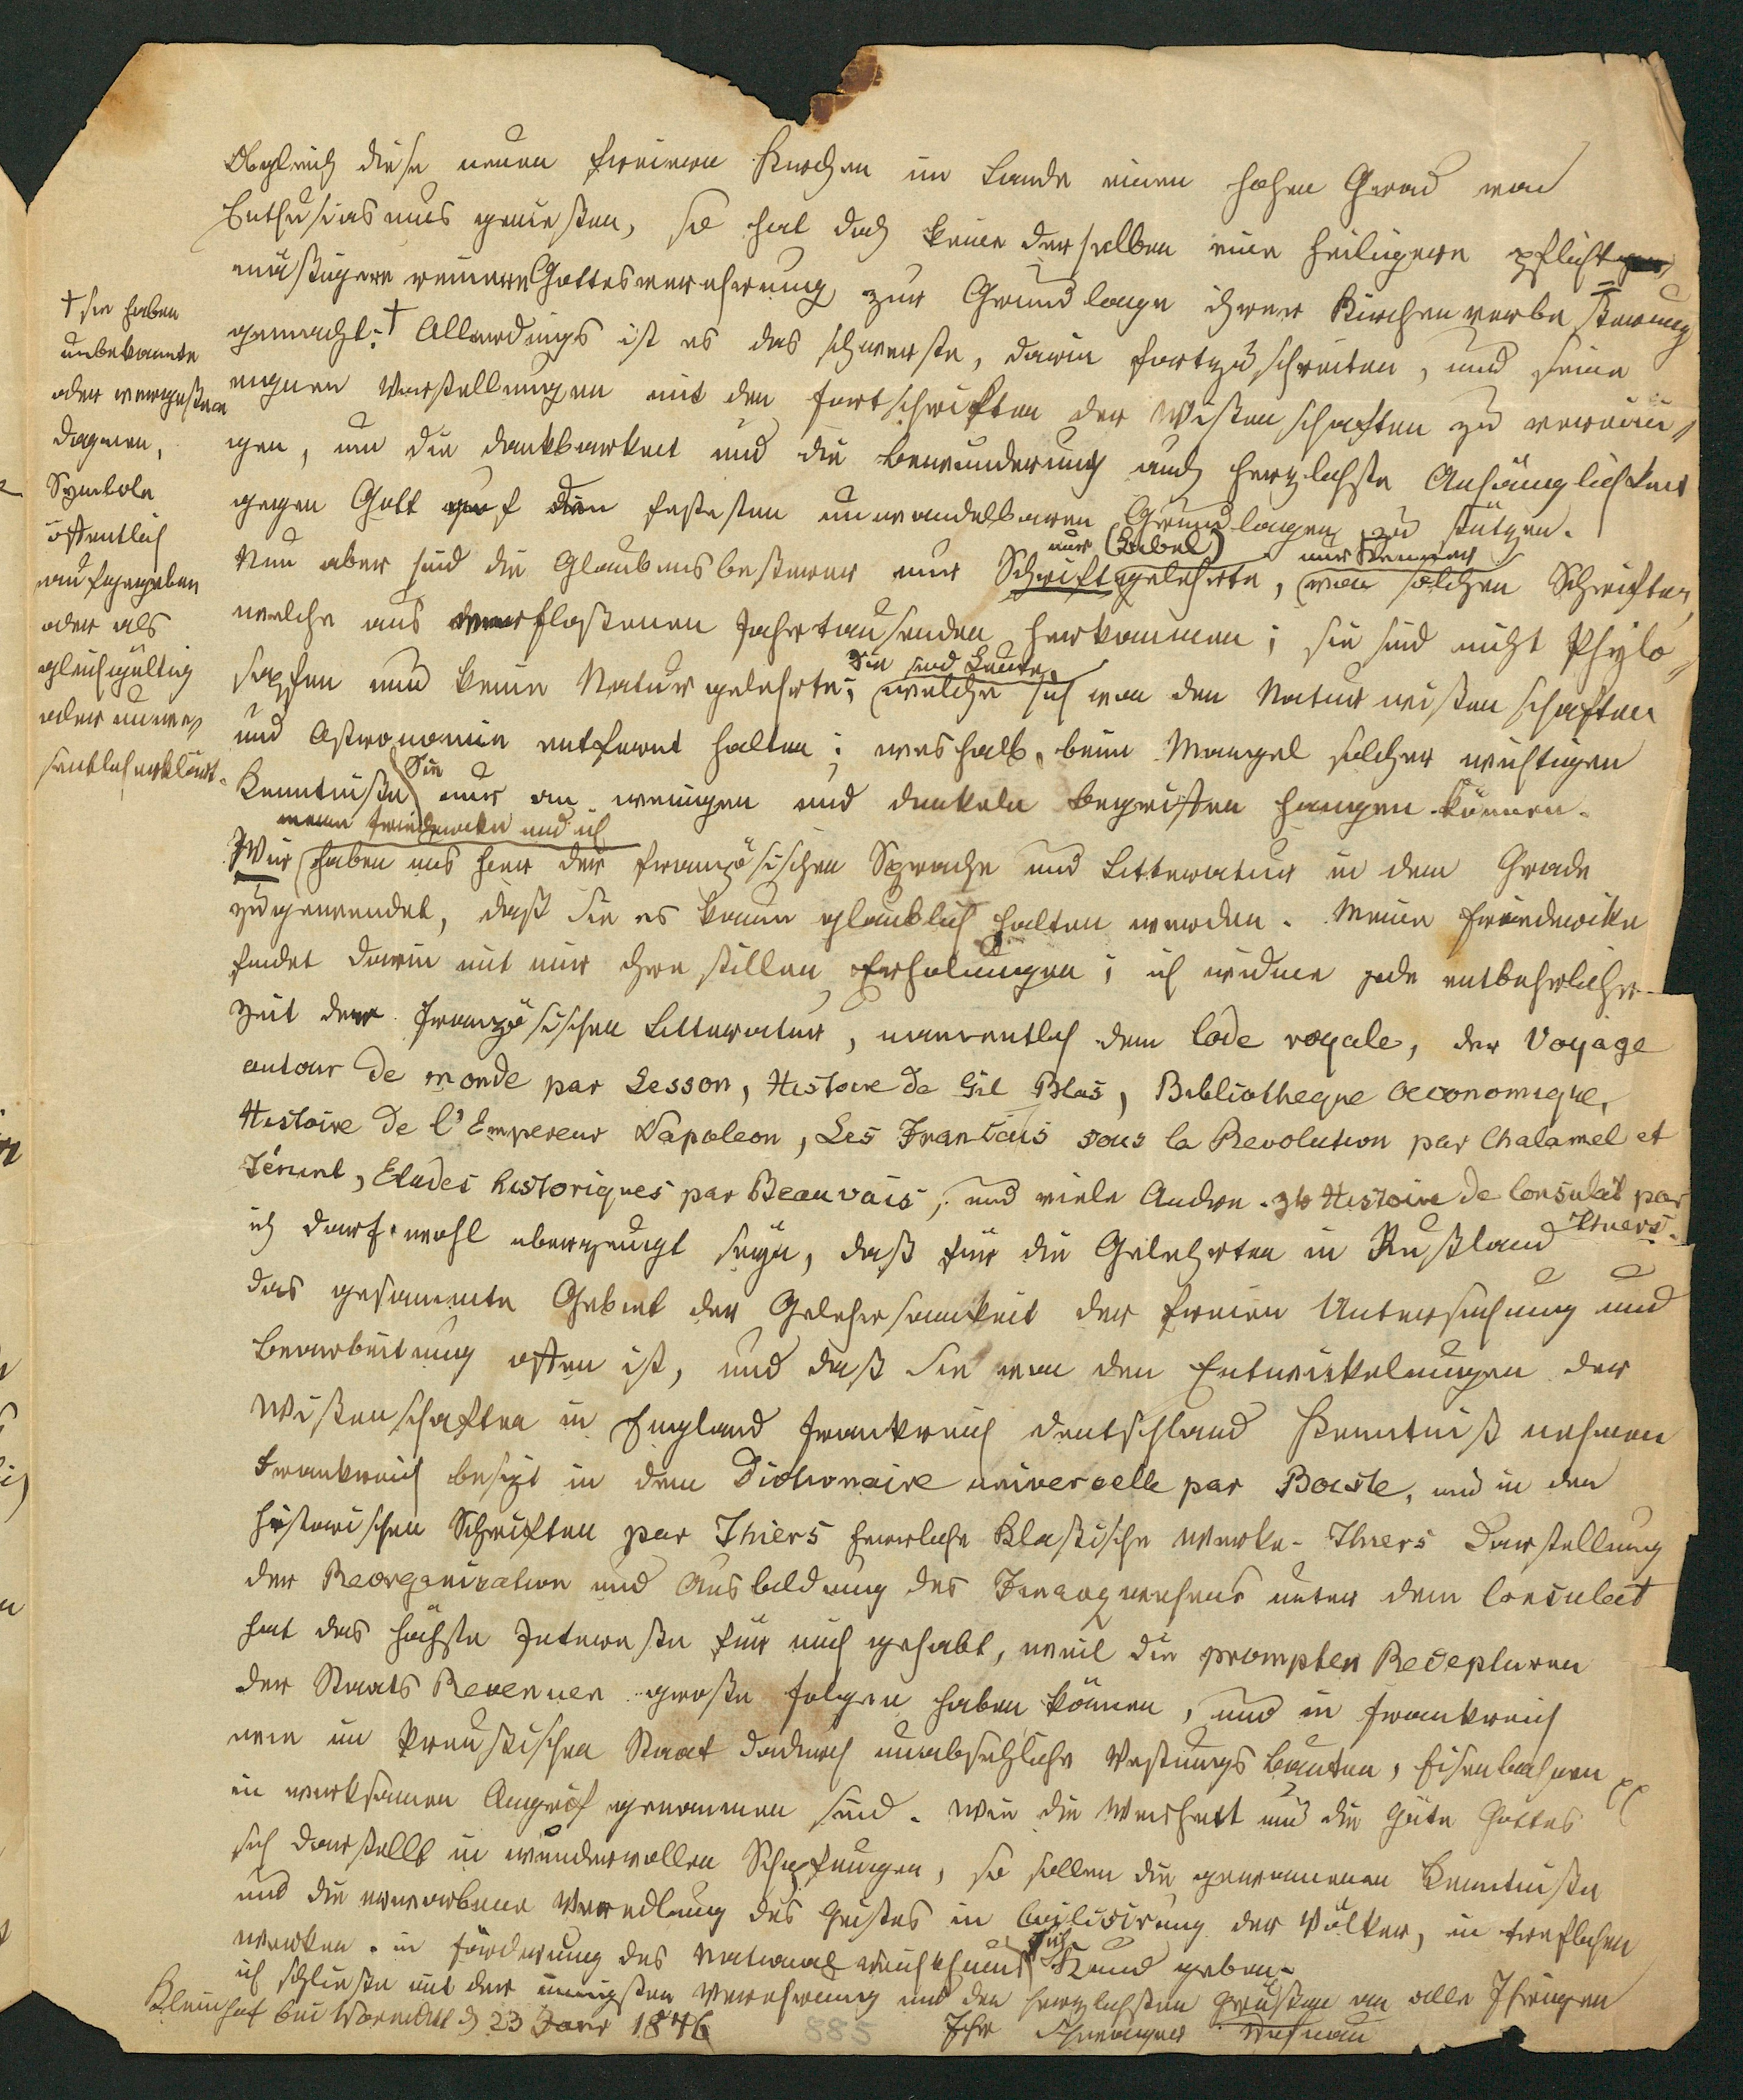 Obgleich diese neuen freieren Kirchen im Lande einen hohen Grad von
Enthusiasmus genießen, so hat doch keine derselben eine heiligere pflicht
mäßigere reinere Gottesverehrung zur Grundlage ihrer Kirchenverbesserung
gemacht; † Allerdings ist es das schwerste, darin fortzuschreiten, und seine
eignen Vorstellungen mit den Fortschritten der Wißenschaften zu verein„
gen, um die Dankbarkeit und die Bewunderung auch herzlichste Anhänglichkeit
gegen Gott auf den festesten unwandelbaren Grundlagen zu stützen.
† sie haben
unbekannte
oder vergeßene
Dogmen,
Symbole
öffentlich
aufgegeben
oder als
gleichgültig
oder unwe„
sentlich erklärt.
nur (Bibel)
Nun aber sind die Glaubensbeßerer nur Schriftgelehrte, von solchen Schriften,
welche aus verfloßenen Jahrtausenden herkommen; sie sind nicht Phylo„
Sie sind Leute,
sophen und keine Naturgelehrte; welche sich von den Naturwißenschaften
und Astronomie entfernt halten; weshalb, beim Mangel solcher wichtigen
Kenntniße Sie nur an wenigen und dunkeln Begriffen hangen können.
meine Friederike und ich
Wir haben uns hier der französischen Sprache und Litteratur in dem Grade
zugewendet, daß Sie es kaum glaublich halten werden. Meine Friederike
findet darin mit mir ihre stillen Erholungen; ich widme jede entbehrliche
Zeit der französischen Litteratur, namentlich dem Code royale, der Voyage
autour de monde par Lesson, Histoire de Gil Blas, Bibliotheque oeconomique,
Histoire de l'Empereur Napoleon, Les Francais sous la Revolution par Chalamel et
Ténint, Etudes historiques par Beauvais, und viele Andre. Histoire de Consulat par
Thiers.
ich darf wohl überzeugt seyn, daß für die Gelehrten in Rußland
das gesammte Gebiet der Gelehrsamkeit der freien Untersuchung und
Bearbeitung offen ist, und daß Sie von den Entwickelungen der
Wißenschaften in England Frankreich Deutschland Kenntniß nehmen
Frankreich besizt in dem Dictionaire universelle par Boiste, und in den
historischen Schriften par Thiers herrliche Klaßische Werke. Thiers Darstellung
der Reorganization und Ausbildung des Finanzwesens unter dem Consulat
hat das höchste Intereße für mich gehabt, weil die prompten Recepturen
der Staats Revenuen große Folgen haben können, und in Frankreich
wie im Preußischen Staat dadurch unabsehliche Vestungs Bauten, Eisenbahnen pp
in wirksamen Angrif genommen sind. Wie die Weisheit und die Güte Gottes
sich darstellt in wundervollen Schöpfungen, so sollen die gewonnenen Kenntniße
und die erworbene Veredlung des Geistes in Civilisirung der Völker, in treflichen
Werken. in Förderung des National Reichthums sich Kund geben.
ich schließe mit der innigsten Verehrung und den herzlichsten Grüßen an alle Ihrigen
Kleinhof bei d 23 Janr 1846
885
Ihr